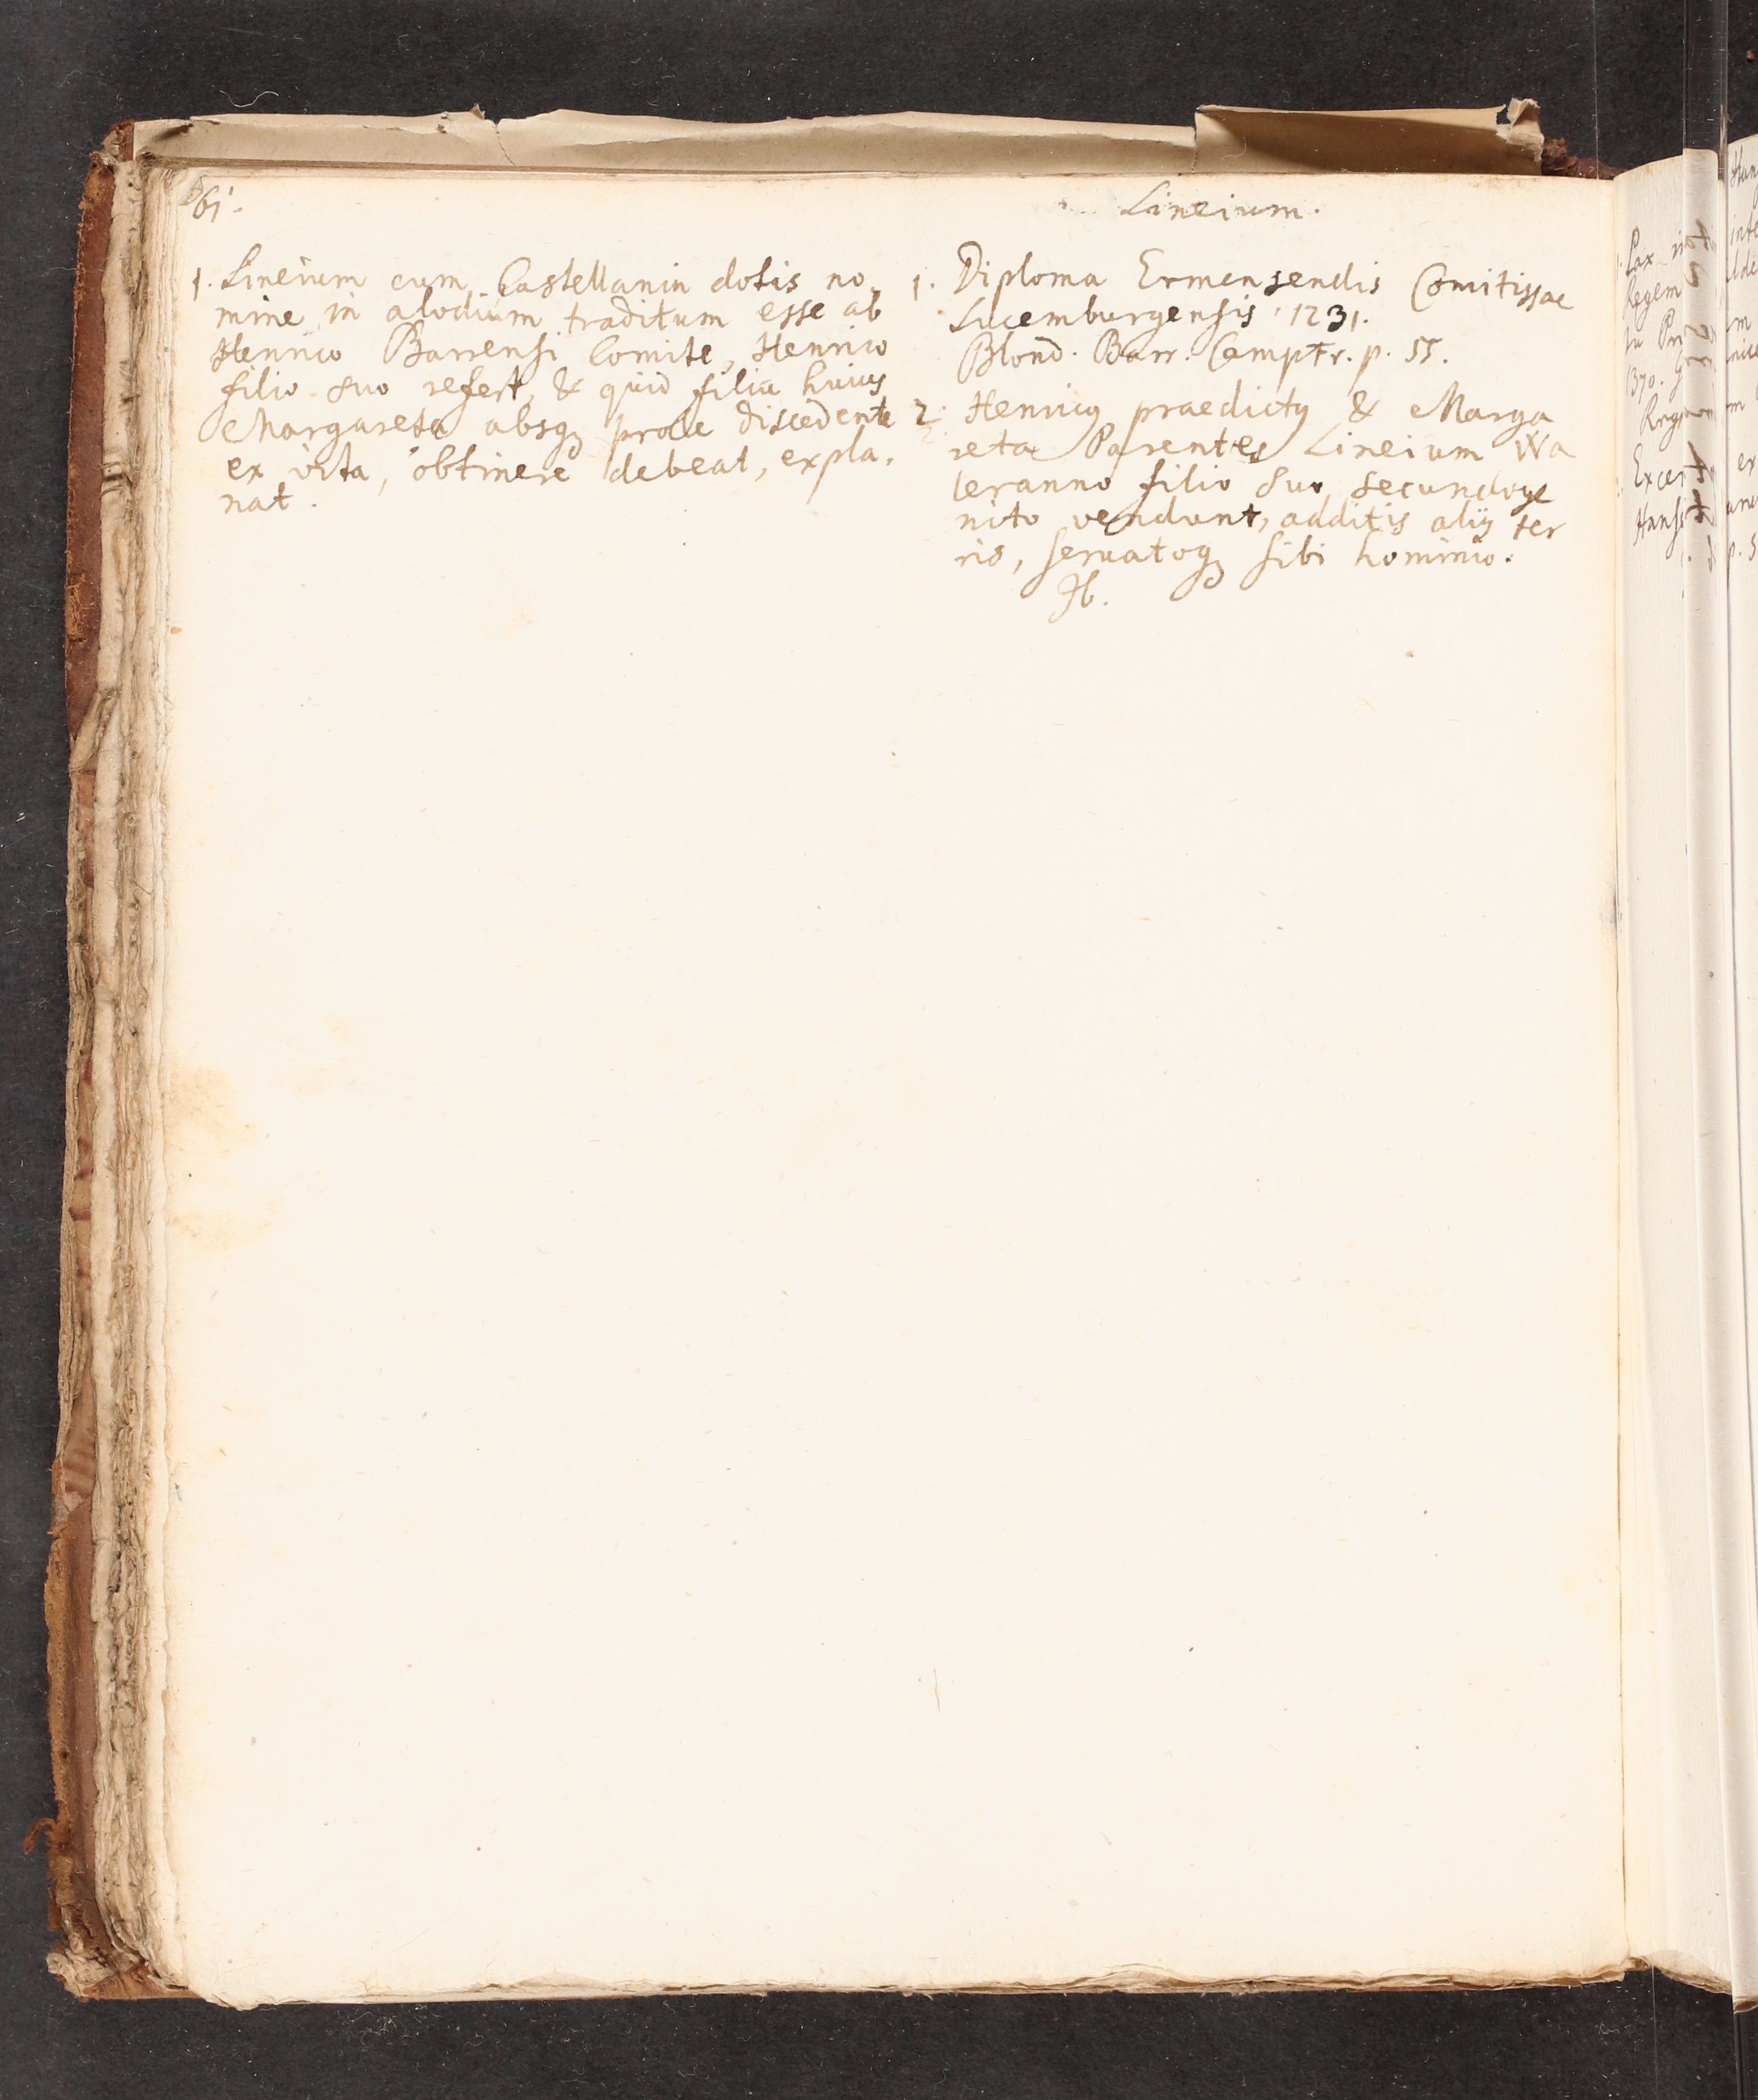 Lineium.
1. Lineium cum Castellania dotis no-
mine in alodium traditum esse ab
Henrico Barrensi Comite, Henrico
filio suo refert, & quid filia huius
Margareta absq; prole discedente
ex vita, obtinere debeat, expla-
nat.
1. Diploma Ermensendis Comitissae
Lucemburgensis 1231.
Blond. Barr. Campfr. p. 55.
2. Henricq praedictq & Marga
reta Parentes Lineium Wa
leranno filio suo secundoge
nito vendunt, additis alijs ter
ris, servatoq; sibi hominio.
Ib.